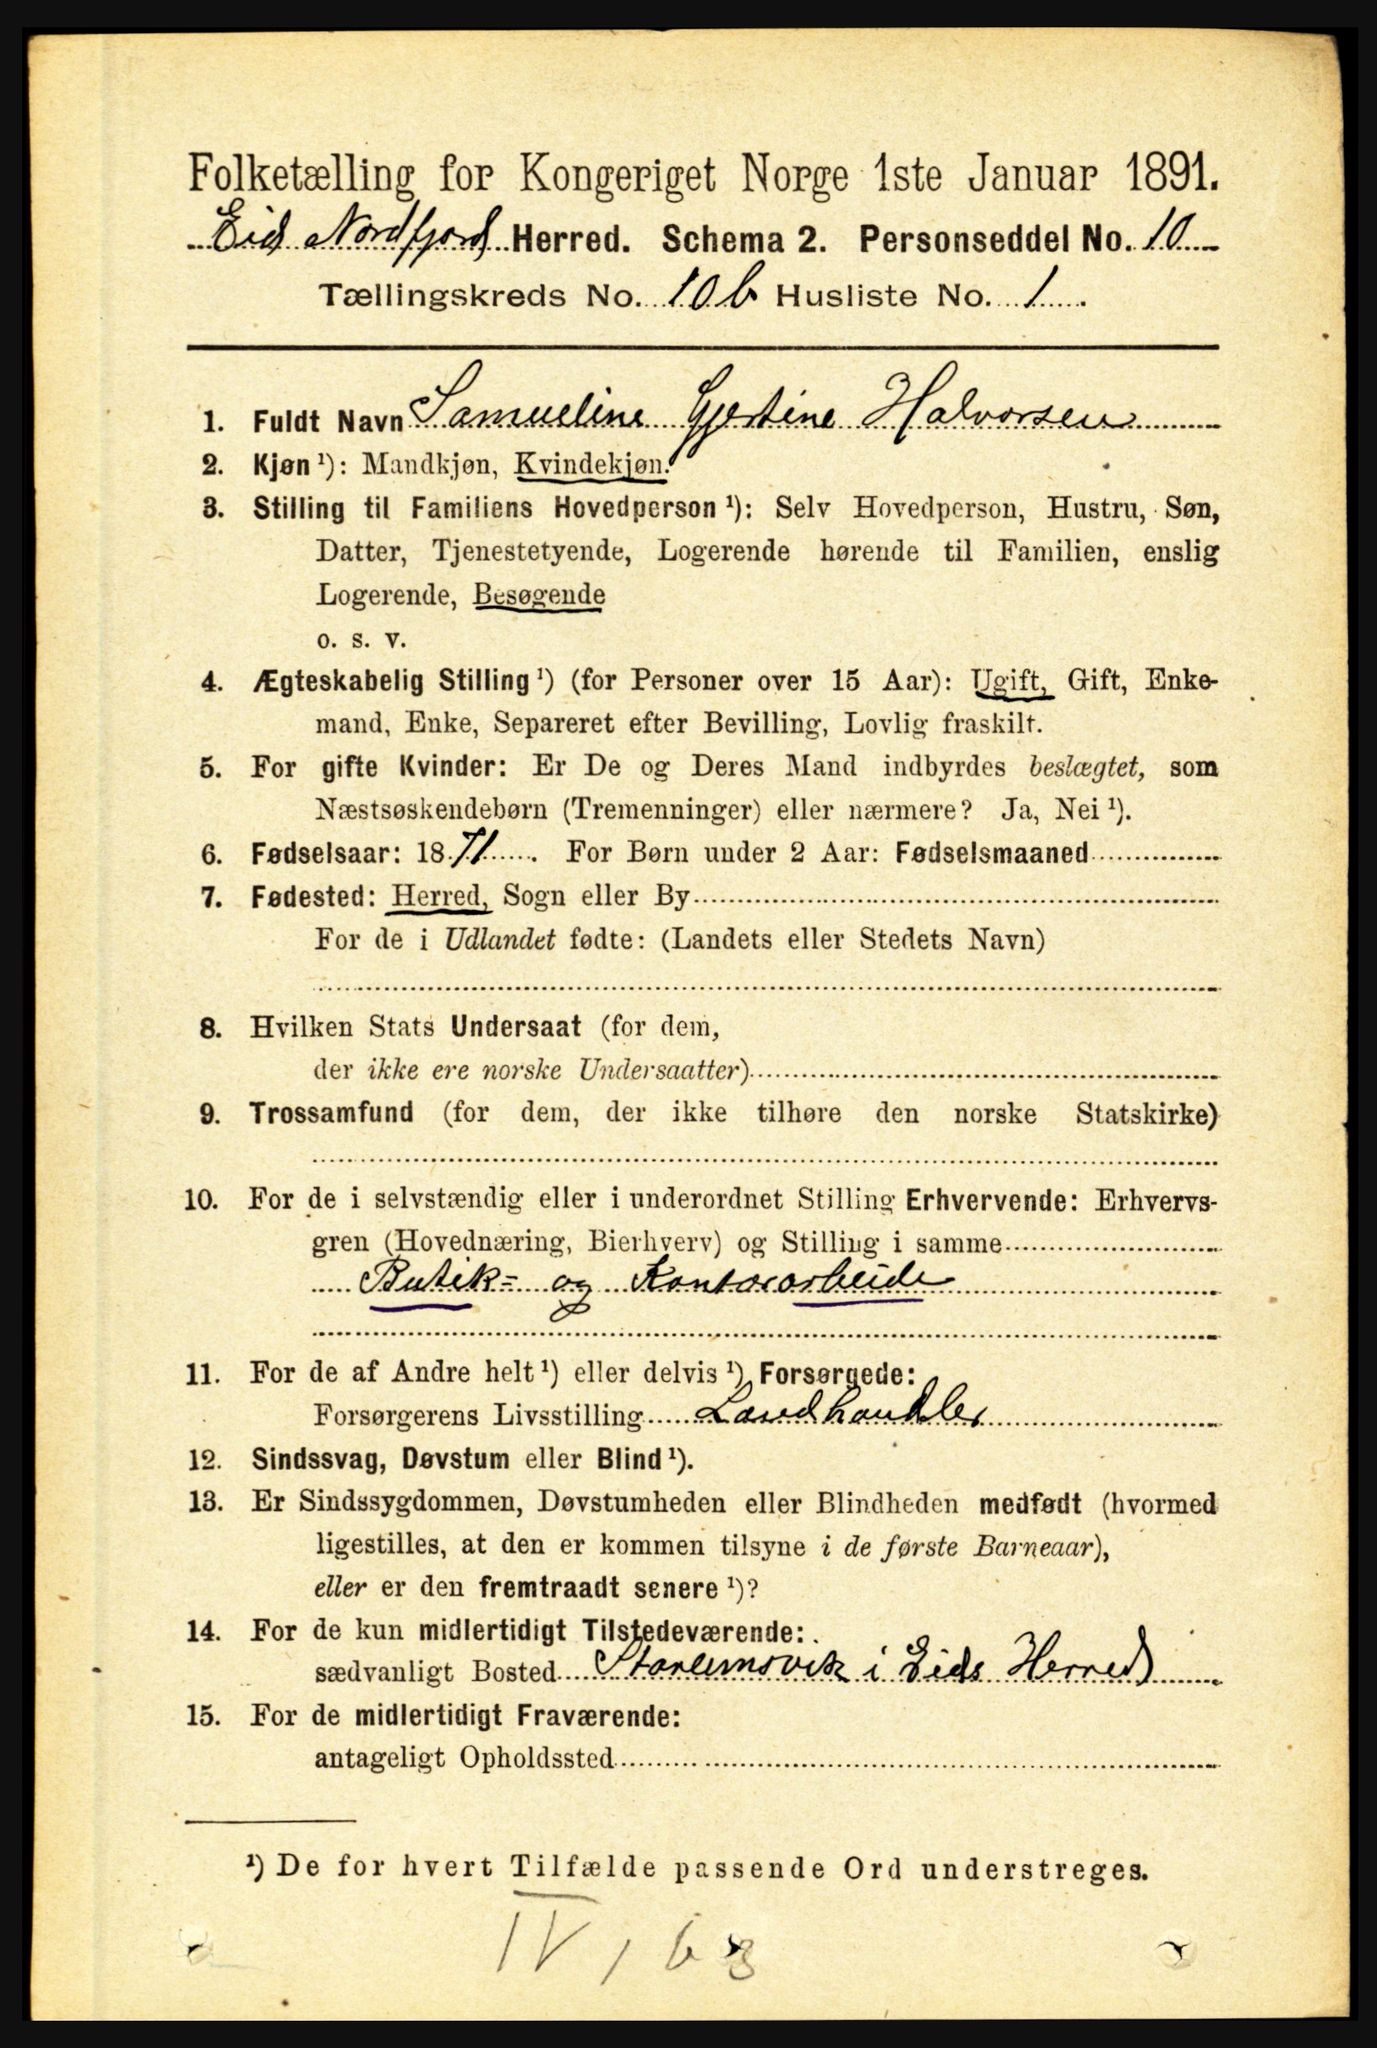 Folketælling for Kongeriget Norge 1ste Januar 1891.
Eid Nordfjord Herred. Schema 2. Personseddel No. 10
Tællingskreds No. 10 b Husliste No. 1.
1. Fuldt Navn Samueline Gjertine Halvorsen
2. Kjøn ¹): Mandkjøn, Kvindekjøn.
3. Stilling til Familiens Hovedperson ¹): Selv Hovedperson, Hustru, Søn,
Datter, Tjenestetyende, Logerende hørende til Familien, enslig
Logerende, Besøgende
o. s. v.
4. Ægteskabelig Stilling ¹) (for Personer over 15 Aar): Ugift, Gift, Enke-
mand, Enke, Separeret efter Bevilling, Lovlig fraskilt.
5. For gifte Kvinder: Er De og Deres Mand indbyrdes beslægtet, som
Næstsøskendebørn (Tremenninger) eller nærmere? Ja, Nei ¹).
6. Fødselsaar: 1871. For Børn under 2 Aar: Fødselsmaaned
7. Fødested: Herred, Sogn eller By
For de i Udlandet fødte: (Landets eller Stedets Navn)
8. Hvilken Stats Undersaat (for dem,
der ikke ere norske Undersaatter)
9. Trossamfund (for dem, der ikke tilhøre den norske Statskirke)
10. For de i selvstændig eller i underordnet Stilling Erhvervende: Erhvervs-
gren (Hovednæring, Bierhverv) og Stilling i samme
Butik- og Kontorarbeide
11. For de af Andre helt ¹) eller delvis ¹) Forsørgede:
Forsørgerens Livsstilling Landhandler
12. Sindssvag, Døvstum eller Blind ¹).
13. Er Sindssygdommen, Døvstumheden eller Blindheden medfødt (hvormed
ligestilles, at den er kommen tilsyne i de første Barneaar),
eller er den fremtraadt senere ¹)?
14. For de kun midlertidigt Tilstedeværende:
sædvanligt Bosted i Eids Herred
15. For de midlertidigt Fraværende:
antageligt Opholdssted
¹) De for hvert Tilfælde passende Ord understreges.
IV, 63